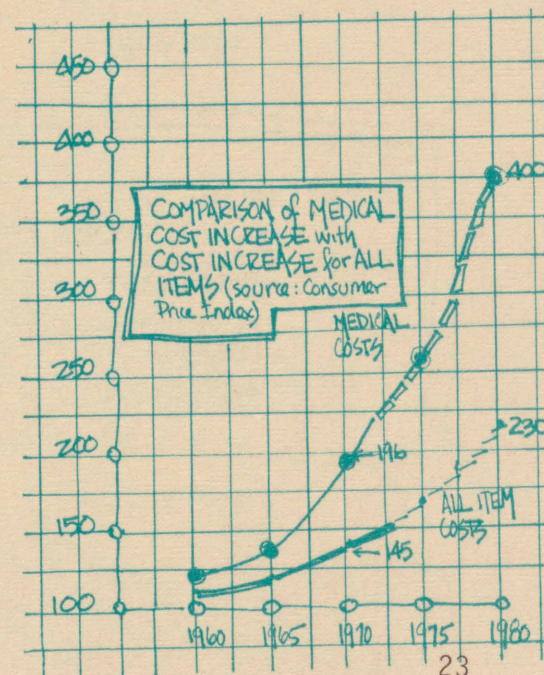 450
400
350
300
250
200
150
100
COMPARISON of MEDICAL
COST INCREASE with
COST INCREASE for ALL
ITEMS (source: Consumer
Price Index)
MEDICAL
COSTS
400
196
230
ALL ITEM
COSTS
145
1960 1965 1970 1975 1980
23